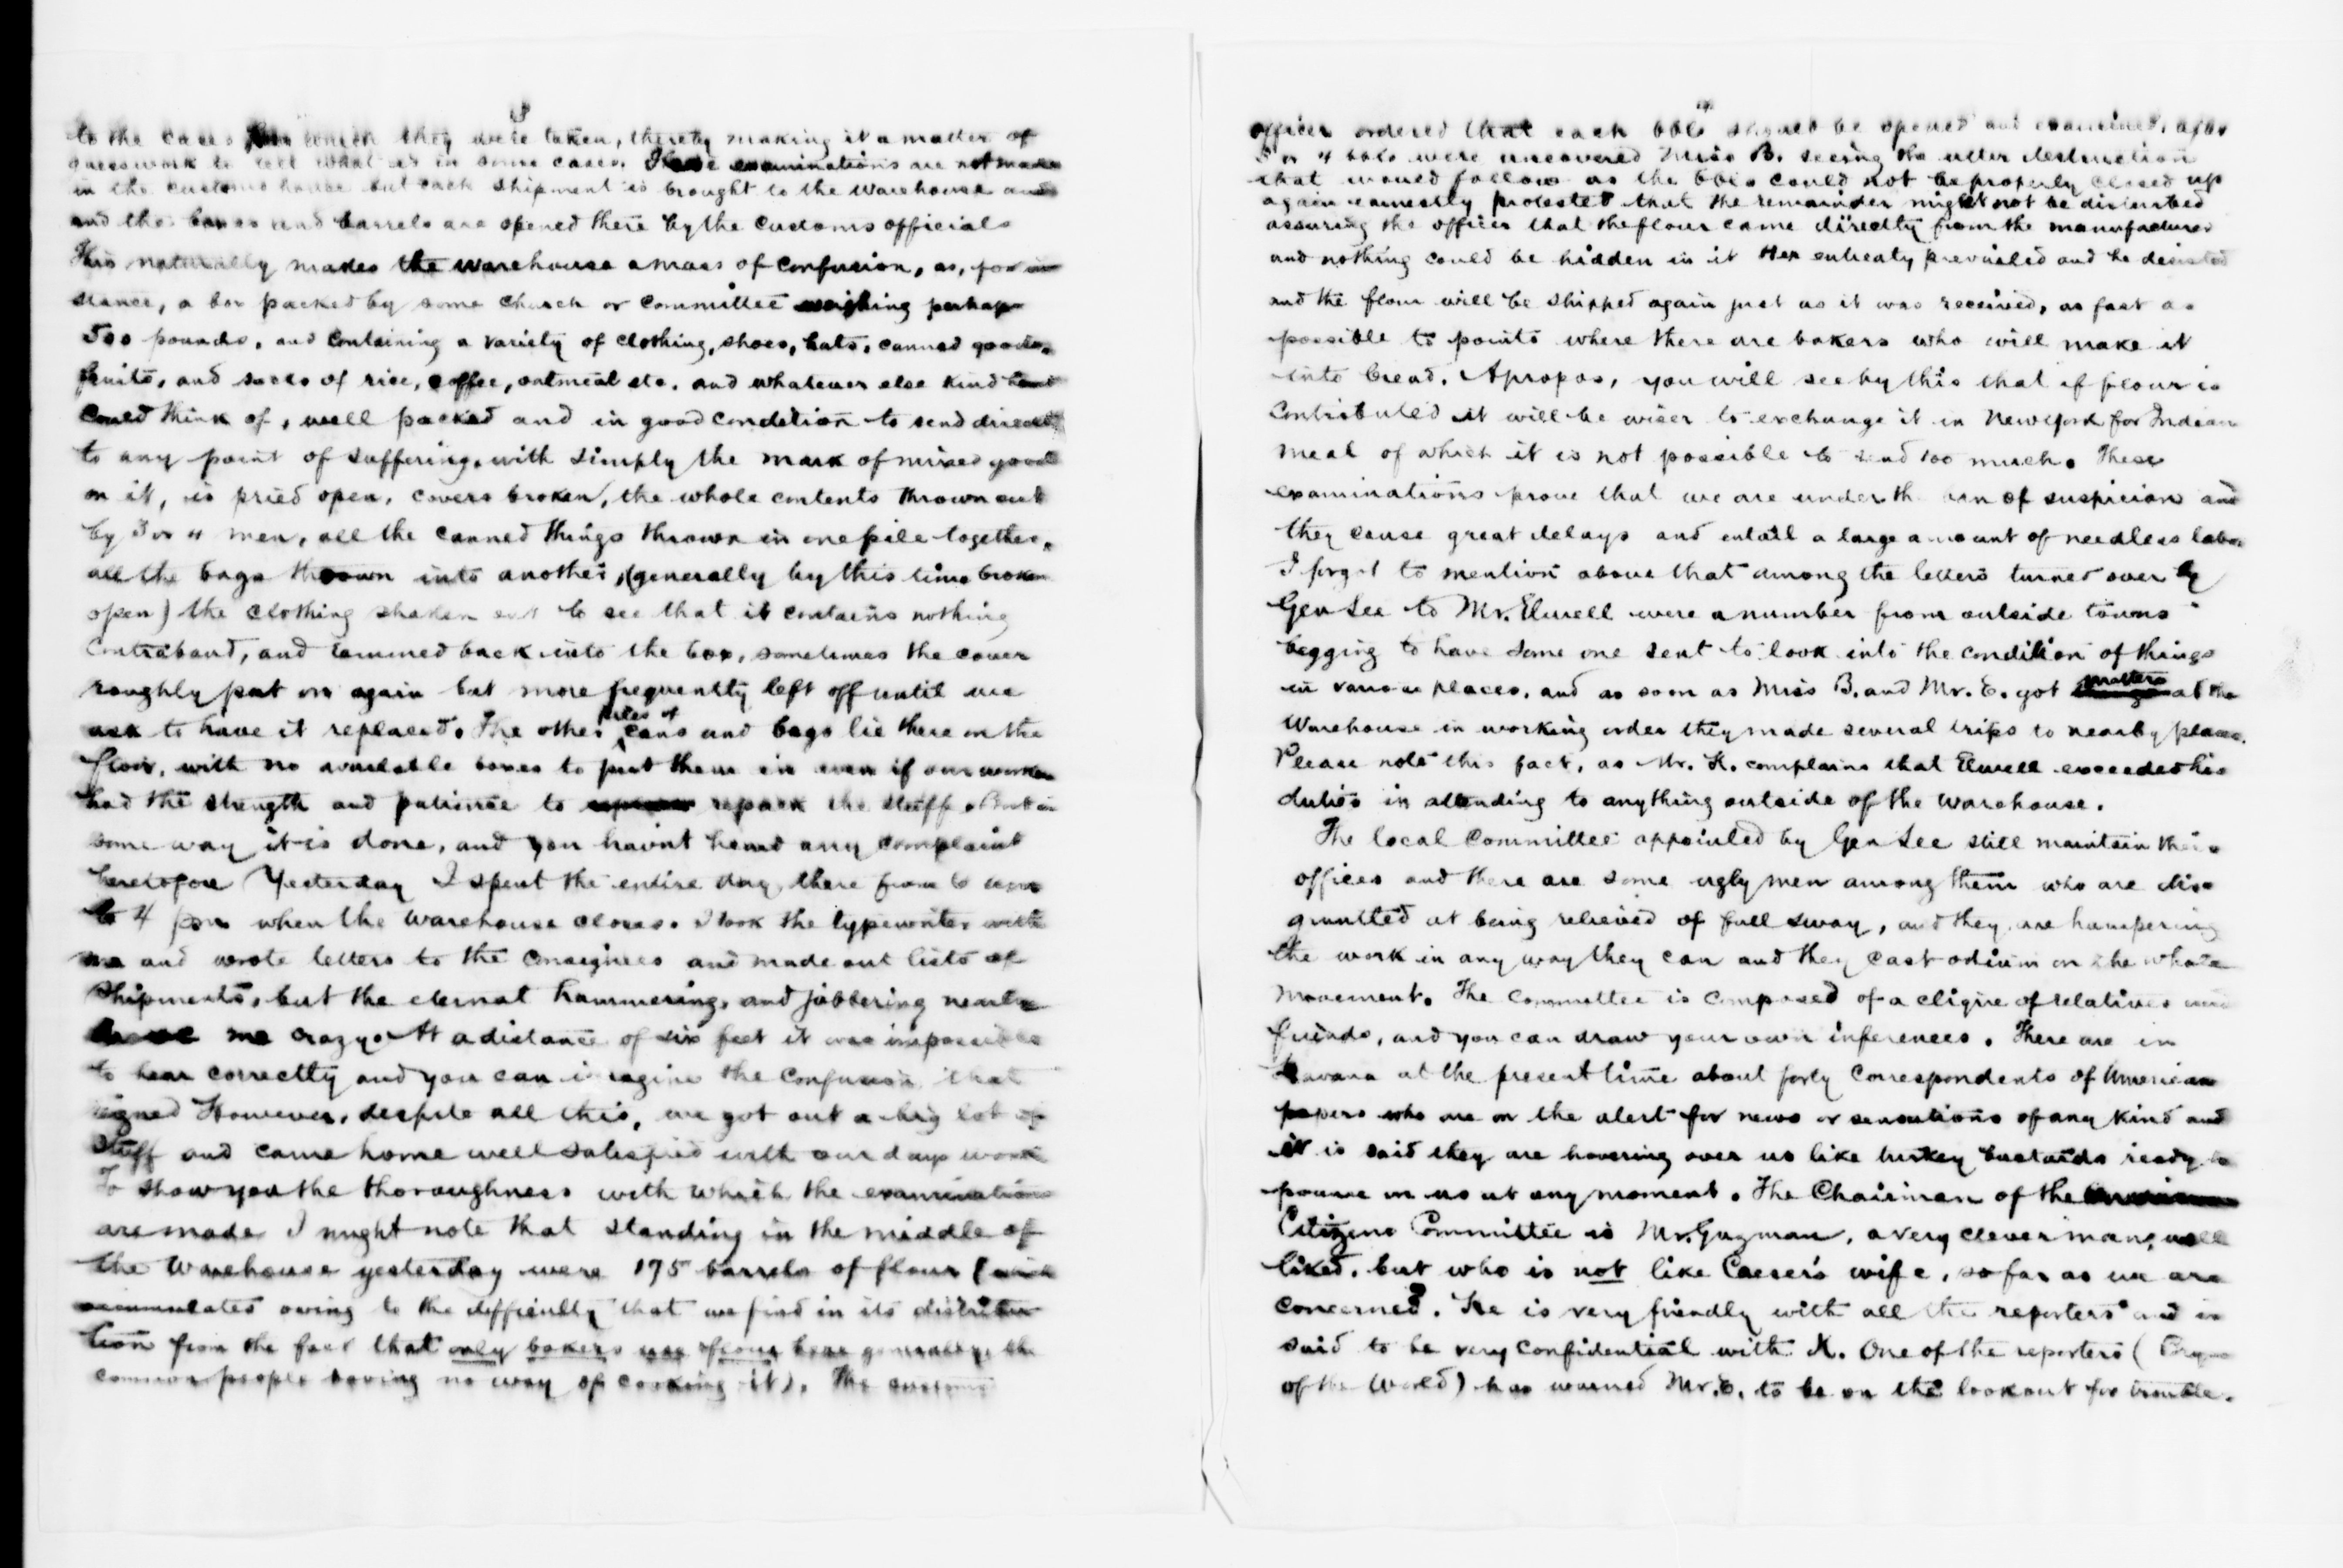 to the cases from which they were taken, thereby making it a matter of
guesswork to tell what is in some cases. These examinations are not made
in the customs house but each shipment is brought to the warehouse and
and the boxes and barrels are opened there by the customs officials
This naturally makes the warehouse a mass of confusion, as, for in
stance, a box packed by some church or committee weighing perhaps
500 pounds, and containing a variety of clothing, shoes, hats, canned goods,
fruits, and sacks of rice, coffee, oatmeal etc. and whatever else kind
could think of, well packed and in good condition to send direct
to any point of suffering, with simply the mark of mixed goods
on it, is pried open, covers broken, the whole contents thrown out
by 3 or 4 men, all the canned things thrown in one pile together,
all the bags thrown into another, (generally by this time broken
open) the clothing shaken out to see that it contains nothing
contraband, and rammed back into the box, sometimes the cover
roughly put on again but more frequently left off until we
ask to have it replaced. The other piles of cans and bags lie there on the
floor, with no available boxes to put them in even if our workers
had the strength and patience to repack the stuff. But in
some way it is done, and you havint heard any complaint
heretofore Yesterday I spent the entire day there from 6 am
to 4 pm when the warehouse closes. I took the typewriter with
me and wrote letters to the consignees and made out lists of
shipments, but the eternal hammering, and jabbering nearly
me crazy. At a distance of six feet it was impossible
to hear correctly and you can imagine the confusion that
reigned However, despite all this, we got out a big lot of
stuff and came home well satisfied with our days work
To show you the thoroughness with which the examinations
are made I might note that standing in the middle of
the warehouse yesterday were 175 barrels of flour (which
accumulated owing to the difficulty that we find in its distribu
tion from the fact that only bakers use flour here generally, the
common people having no way of cooking it). The customs
officer ordered that each bbl should be opened and examined, after
3 or 4 bbls were uncovered Miss B. seeing the utter destruction
that would follow as the bbls could not be properly closed up
again earnestly protested that the remainder might not be disturbed
assuring the officer that the flour came directly from the manufacturer
and nothing could be hidden in it Her entreaty prevailed and he desisted
and the flour will be shipped again just as it was received, as fast as
possible to points where there are bakers who will make it
into bread. Apropos, you will see by this that if flour is
contributed it will be wiser to exchange it in New York for Indian
meal of which it is not possible to send too much. These
examinations prove that we are under the ban of suspicion and
they cause great delays and entail a large amount of needless labor
I forgot to mention above that among the letters turned over by
Gen Lee to Mr. Elwell were a number from outside towns
begging to have some one sent to look into the condition of things
in various places, and as soon as Miss B. and Mr. E. got matters at the
warehouse in working order they made several trips to nearby places.
Please note this fact, as Mr. K. complains that Elwell exceeded his
duties in attending to anything outside of the warehouse.
The local committee appointed by Gen Lee still maintain their
offices and there are some ugly men among them who are dis
gruntled at being relieved of full sway, and they are hampering
the work in any way they can and they cast odium on the whole
movement. The committee is composed of a cliqire of relatives and
friends, and you can draw your own inferences. There are in
Havana at the present time about forty correspondents of American
papers who are on the alert for news or sensations of any kind and
it is said they are hovering over us like turkey bustards ready to
pounce on us at any moment. The Chairman of the
Citizens Committee is Mr. Guzman, a very clever man, well
liked, but who is not like Caeser's wife, so far as we are
concerned. He is very friendly with all the reporters and is
said to be very confidential with K. One of the reporters (
of the World) has warned Mr. E. to be on the lookout for trouble.